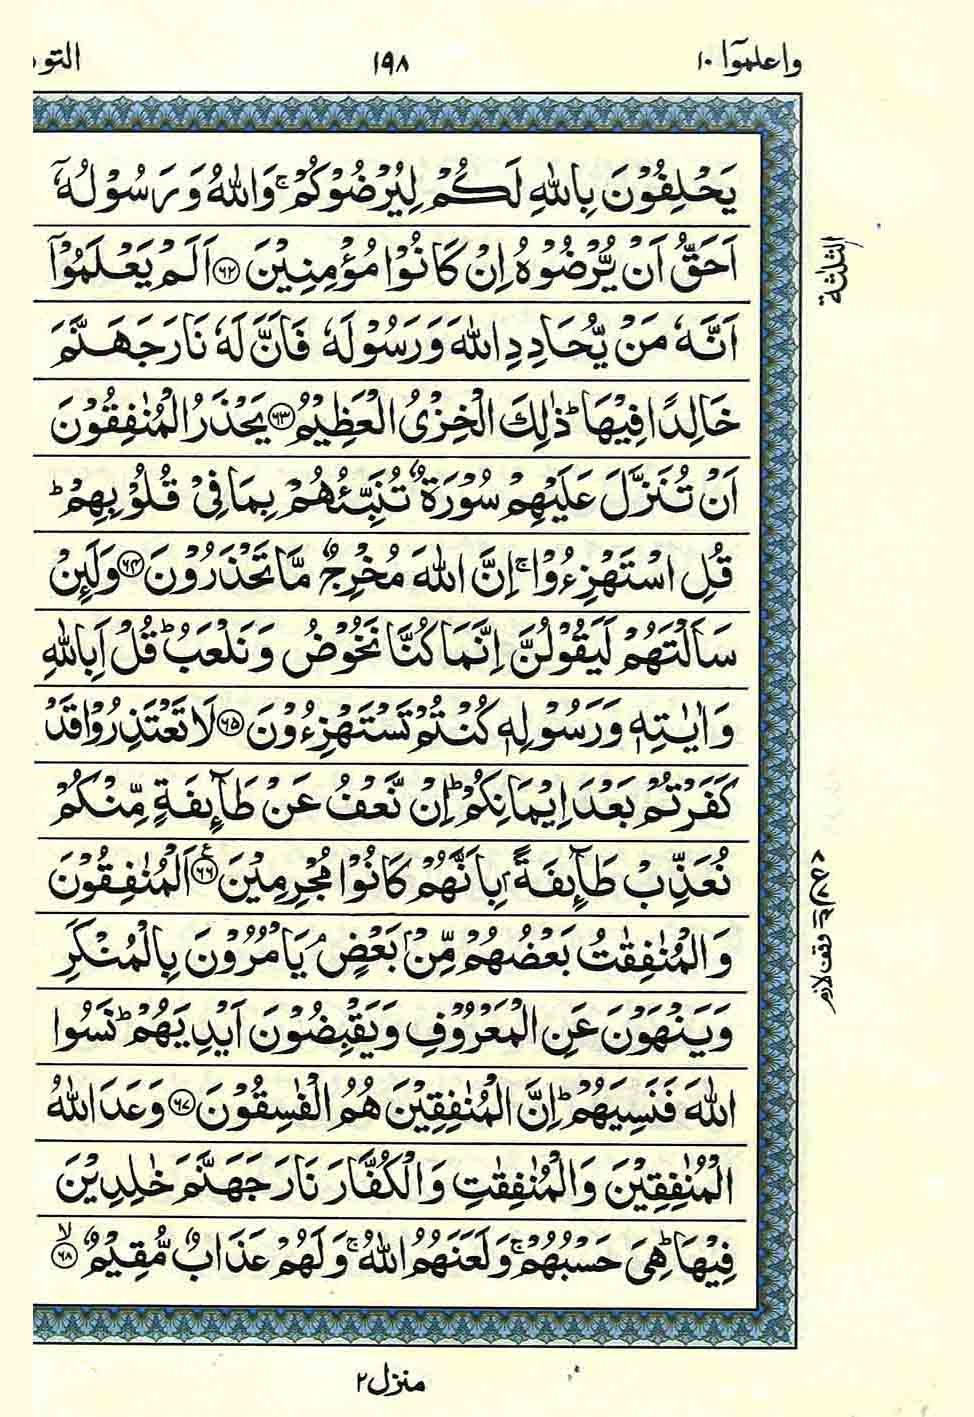 واعلموٓا ١٠
١٩٨
التو
يَحْلِفُوْنَ بِاللّٰهِ لَكُمْ لِيُرْضُوْكُمْ ۚ وَاللّٰهُ وَرَسُوْلُهٗۤ
اَحَقُّ اَنْ يُّرْضُوْهُ اِنْ كَانُوْا مُؤْمِنِيْنَ ﴿٦٢﴾ اَلَمْ يَعْلَمُوْۤا
اَنَّهٗ مَنْ يُّحَادِدِ اللّٰهَ وَرَسُوْلَهٗ فَاَنَّ لَهٗ نَارَ جَهَنَّمَ
خَالِدًا فِيْهَا ؕ ذٰلِكَ الْخِزْىُ الْعَظِيْمُ ﴿٦٣﴾ يَحْذَرُ الْمُنٰفِقُوْنَ
اَنْ تُنَزَّلَ عَلَيْهِمْ سُوْرَةٌ تُنَبِّئُهُمْ بِمَا فِىْ قُلُوْبِهِمْ ؕ
قُلِ اسْتَهْزِءُوْا ۚ اِنَّ اللّٰهَ مُخْرِجٌ مَّا تَحْذَرُوْنَ ﴿٦٤﴾ وَلَئِنْ
سَاَلْتَهُمْ لَيَقُوْلُنَّ اِنَّمَا كُنَّا نَخُوْضُ وَنَلْعَبُ ؕ قُلْ اَبِاللّٰهِ
وَاٰيٰتِهٖ وَرَسُوْلِهٖ كُنْتُمْ تَسْتَهْزِءُوْنَ ﴿٦٥﴾ لَا تَعْتَذِرُوْا قَدْ
كَفَرْتُمْ بَعْدَ اِيْمَانِكُمْ ؕ اِنْ نَّعْفُ عَنْ طَآئِفَةٍ مِّنْكُمْ
نُعَذِّبْ طَآئِفَةًۢ بِاَنَّهُمْ كَانُوْا مُجْرِمِيْنَ ﴿٦٦﴾ۧ اَلْمُنٰفِقُوْنَ
وَالْمُنٰفِقٰتُ بَعْضُهُمْ مِّنْۢ بَعْضٍ ۘ يَاْمُرُوْنَ بِالْمُنْكَرِ
وَيَنْهَوْنَ عَنِ الْمَعْرُوْفِ وَيَقْبِضُوْنَ اَيْدِيَهُمْ ؕ نَسُوا
اللّٰهَ فَنَسِيَهُمْ ؕ اِنَّ الْمُنٰفِقِيْنَ هُمُ الْفٰسِقُوْنَ ﴿٦٧﴾ وَعَدَ اللّٰهُ
الْمُنٰفِقِيْنَ وَالْمُنٰفِقٰتِ وَالْكُفَّارَ نَارَ جَهَنَّمَ خٰلِدِيْنَ
فِيْهَا ؕ هِىَ حَسْبُهُمْ ۚ وَلَعَنَهُمُ اللّٰهُ ۚ وَلَهُمْ عَذَابٌ مُّقِيْمٌ ۙ﴿٦٨﴾
الثلٰثة
وقف لازم
منزل ٢